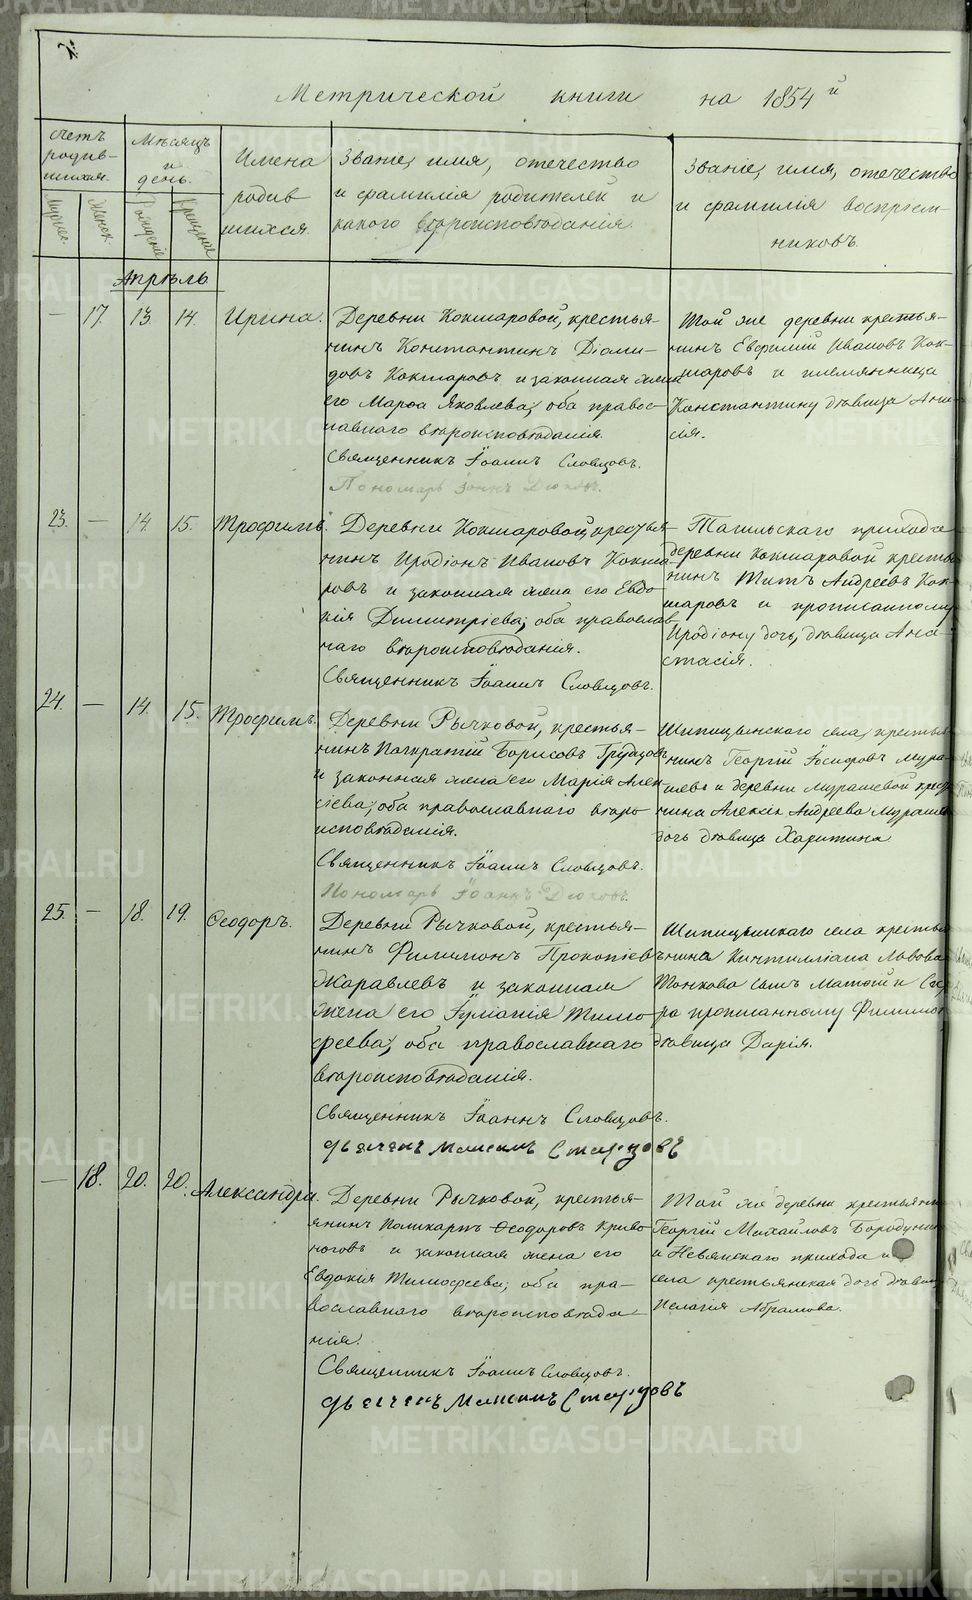 Метрической книги на 1854й
Счетъ родив- шихся.
Мѣсяцъ и день.
Имена родив шихся.
Званіе, имя, отечество
и фамилія родителей и
какого вѣроисповѣданія.
Званіе, имя, отечество
и фамилія воспріем-
никовъ.
Мужеск. Женск. Рожденіе Крещеніе
Апрѣль
— 17. 13. 14. Ирина.
Деревни Кокшаровой, крестья-
нинъ Константинъ Діоми-
довъ Кокшаровъ и законная жена
его Марѳа Яковлева; оба право-
славнаго вѣроисповѣданія.
Священникъ Іоаннъ Словцовъ.
Пономарь Іоаннъ
Той же деревни крестья-
нинъ Евфимій Ивановъ Кок-
шаровъ и племянница
Константину дѣвица Ани-
сія.
23. — 14. 15. Трофимъ.
Деревни Кокшаровой, крестья-
нинъ Иродіонъ Ивановъ Кокша-
ровъ и законная жена его Евдо-
кія Димитріева; оба православ-
наго вѣроисповѣданія.
Священникъ Іоаннъ Словцовъ.
Тагильскаго прихода
деревни Кокшаровой крестья-
нинъ Титъ Андреевъ Кок-
шаровъ и прописанному
Иродіону дочь, дѣвица Ана-
стасія.
24. — 14. 15. Трофимъ.
Деревни Рычковой, крестья-
нинъ Панкратій Борисовъ
и законная жена его Марія Алек-
сіева; оба православнаго вѣро-
исповѣданія.
Священникъ Іоаннъ Словцовъ.
Пономарь Іоаннъ
Шипицынскаго села, крестья-
нинъ Георгій Іосифовъ Мура-
шевъ и деревни Мурашевой крес
нина Алексѣя Андреева Мурашева
дочь дѣвица Харитина
25. — 18. 19. Ѳеодоръ.
Деревни Рычковой, крестья-
нинъ Филимонъ Прокопіевъ
Журавлевъ и законная
жена его Іуліанія Тимо-
феева; оба православнаго
вѣроисповѣданія.
Священникъ Іоаннъ Словцовъ.
дьячекъ Максимъ Старцовъ
Шипицынскаго села крестья
нина Кинтилліана Львова
Тонкова сынъ Матѳій и Сес
ра прописанному Филимо
дѣвица Дарія.
— 18. 20. 20. Александра.
Деревни Рычковой, крестья-
янинъ Поликарпъ Ѳеодоровъ Криво
ноговъ и законная жена его
Евдокія Тимофеева; оба пра-
вославнаго вѣроисповѣда-
нія.
Священникъ Іоаннъ Словцовъ.
дьячекъ Максимъ Старцовъ
Той же деревни крестьянинъ
Георгій Михайловъ Бородинъ
и Невьянскаго прихода и
села крестьянская дочь дѣвица
Пелагія Абрамова.
METRIKI.GASO-URAL.RU